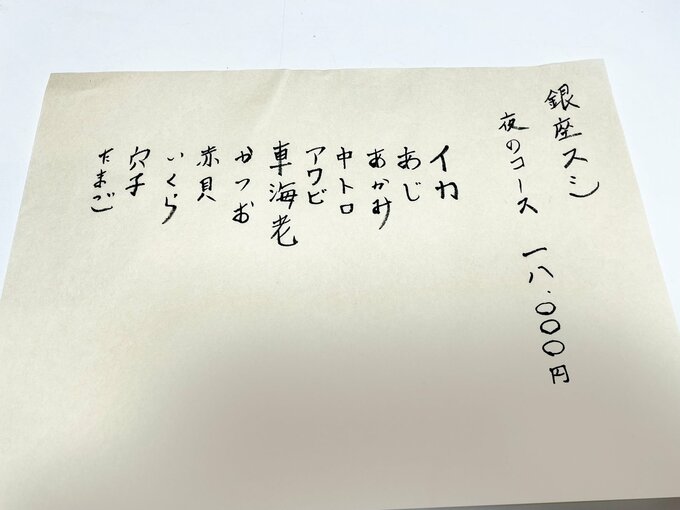 銀座スシ
夜のコース 一八.〇〇〇円
イカ
あじ
あかみ
中トロ
アワビ
車海老
かつお
赤貝
いくら
穴子
たまご